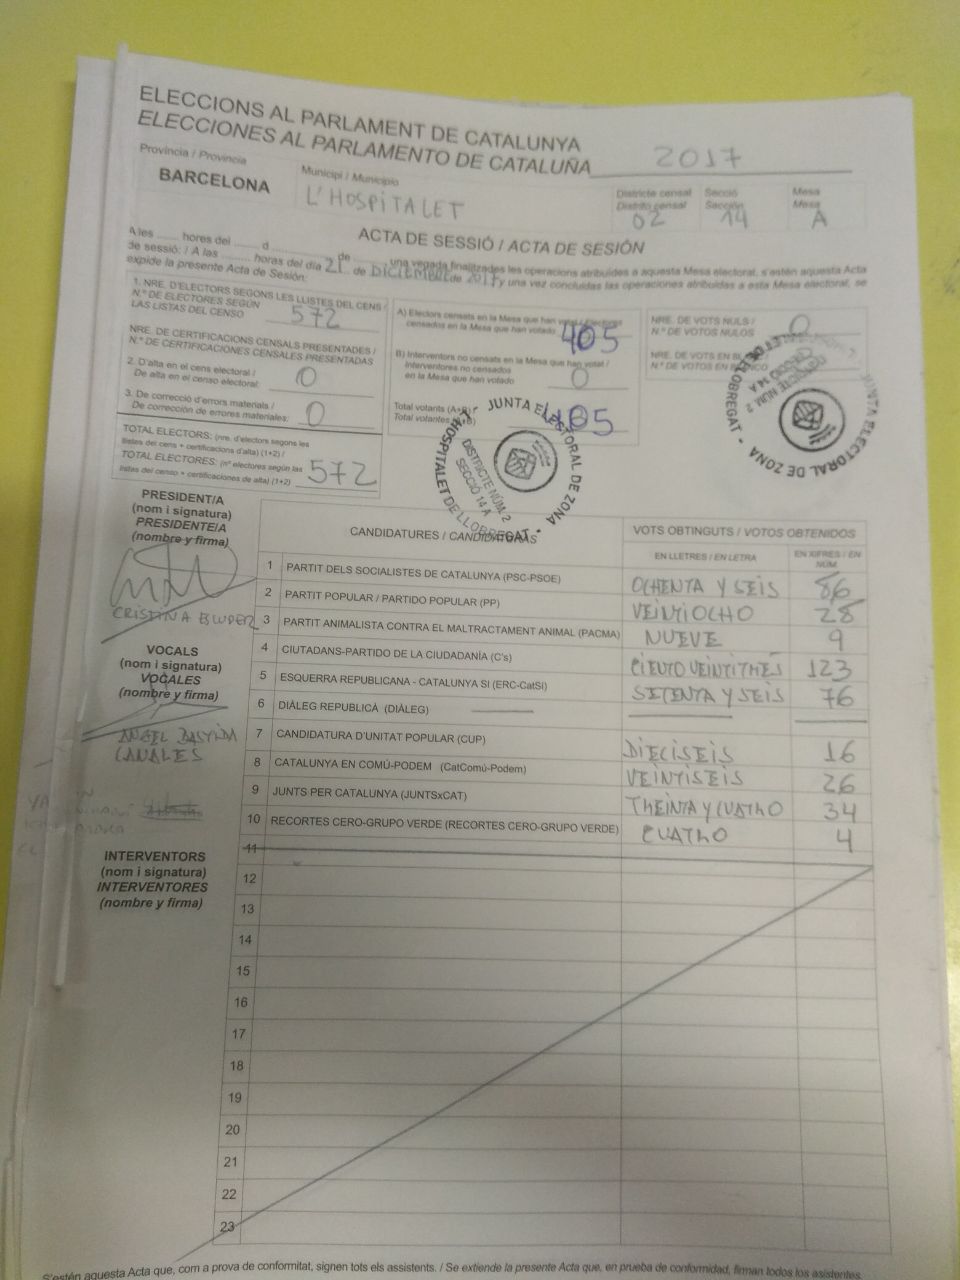 ELECCIONS AL PARLAMENT DE CATALUNYA
ELECCIONES AL PARLAMENTO DE CATALUÑA 2017
Província / Provincia
BARCELONA
Municipi / Municipio
L'HOSPITALET
Districte censal
Distrito censal
02
Secció
Sección
14
Mesa
Mesa
A
ACTA DE SESSIÓ / ACTA DE SESIÓN
A les ...... hores del ...... d ...... de ...... una vegada finalitzades les operacions atribuïdes a aquesta Mesa electoral, s'estén aquesta Acta
de sessió: / A las ...... horas del día 21 de DICIEMBRE de 2017 y una vez concluidas las operaciones atribuidas a esta Mesa electoral, se
expide la presente Acta de Sesión:
1. NRE. D'ELECTORS SEGONS LES LLISTES DEL CENS /
N.º DE ELECTORES SEGÚN
LAS LISTAS DEL CENSO 572
NRE. DE CERTIFICACIONS CENSALS PRESENTADES /
N.º DE CERTIFICACIONES CENSALES PRESENTADAS
2. D'alta en el cens electoral /
De alta en el censo electoral: 0
3. De correcció d'errors materials /
De corrección de errores materiales: 0
TOTAL ELECTORS: (nre. d'electors segons les
llistes del cens + certificacions d'alta) (1+2) /
TOTAL ELECTORES: (nº electores según las
listas del censo + certificaciones de alta) (1+2) 572
A) Electors censats en la Mesa que han votat / Electores
censados en la Mesa que han votado 405
B) Interventors no censats en la Mesa que han votat /
Interventores no censados
en la Mesa que han votado 0
Total votants (A+B) /
Total votantes (A+B) 405
NRE. DE VOTS NULS /
N.º DE VOTOS NULOS 0
NRE. DE VOTS EN
N.º DE VOTOS EN
JUNTA ELECTORAL DE ZONA
HOSPITALET DE LLOBREGAT
DISTRICTE NÚM. 2
SECCIÓ 14 A
JUNTA ELECTORAL DE ZONA
LLOBREGAT
DISTRICTE NÚM. 2
SECCIÓ 14 A
PRESIDENT/A
(nom i signatura)
PRESIDENTE/A
(nombre y firma)
CRISTINA
VOCALS
(nom i signatura)
VOCALES
(nombre y firma)
CANALES
INTERVENTORS
(nom i signatura)
INTERVENTORES
(nombre y firma)
CANDIDATURES / CANDIDATURAS
VOTS OBTINGUTS / VOTOS OBTENIDOS
EN LLETRES / EN LETRA
EN XIFRES / EN NÚM.
1 PARTIT DELS SOCIALISTES DE CATALUNYA (PSC-PSOE) OCHENTA Y SEIS 86
2 PARTIT POPULAR / PARTIDO POPULAR (PP) VEINTIOCHO 28
3 PARTIT ANIMALISTA CONTRA EL MALTRACTAMENT ANIMAL (PACMA) NUEVE 9
4 CIUTADANS-PARTIDO DE LA CIUDADANÍA (C's) CIENTO VEINTITRES 123
5 ESQUERRA REPUBLICANA - CATALUNYA SI (ERC-CatSí) SETENTA Y SEIS 76
6 DIÀLEG REPUBLICÀ (DIÀLEG)
7 CANDIDATURA D'UNITAT POPULAR (CUP) DIECISEIS 16
8 CATALUNYA EN COMÚ-PODEM (CatComú-Podem) VEINTISEIS 26
9 JUNTS PER CATALUNYA (JUNTSxCAT) TREINTA Y CUATRO 34
10 RECORTES CERO-GRUPO VERDE (RECORTES CERO-GRUPO VERDE) CUATRO 4
11
12
13
14
15
16
17
18
19
20
21
22
23
S'estén aquesta Acta que, com a prova de conformitat, signen tots els assistents. / Se extiende la presente Acta que, en prueba de conformidad, firman todos los asistentes.